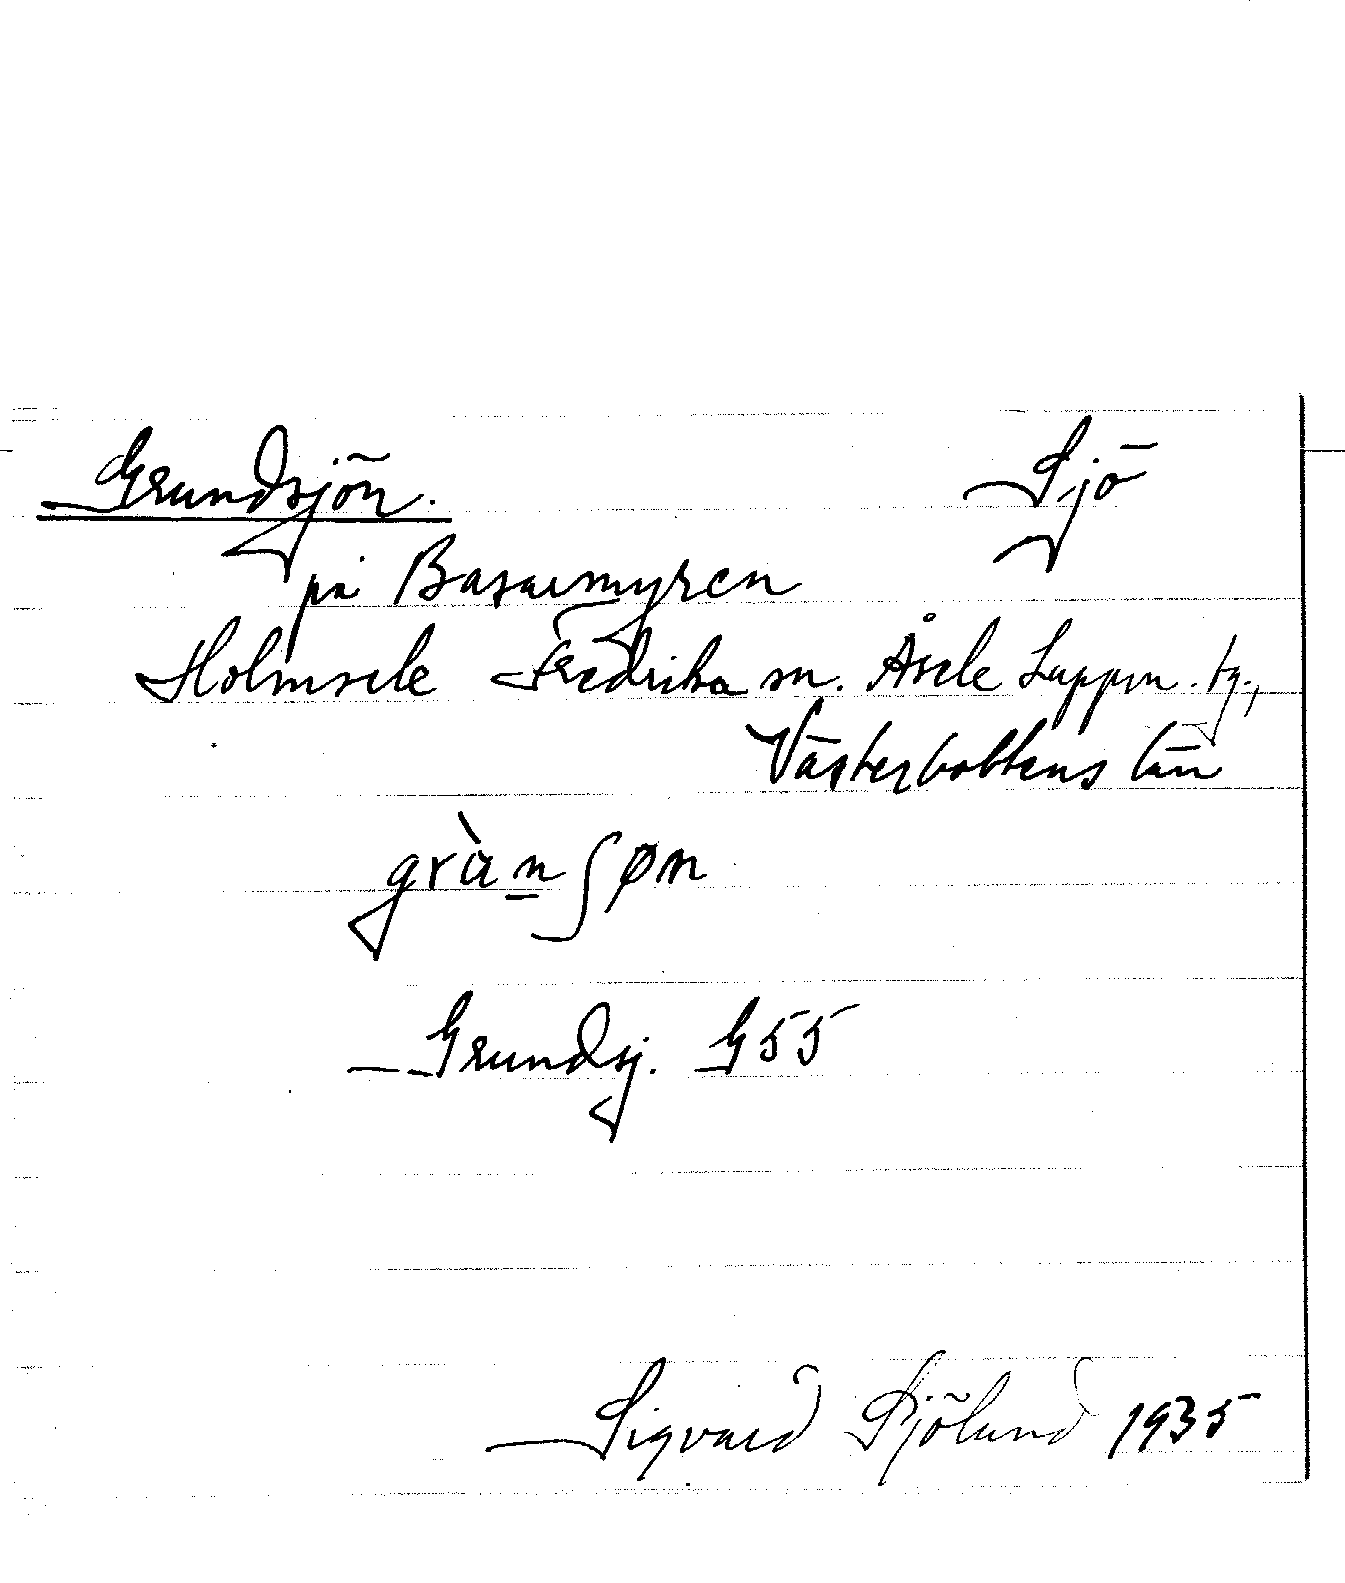 Grundsjön. Sjö
på Basarmyren
Holmsele Fredrika sn. Åsele Lappm. tg.,
Västerbottens län
grànʃøn
Grundsj. G55
Sigvard Sjölund 1935